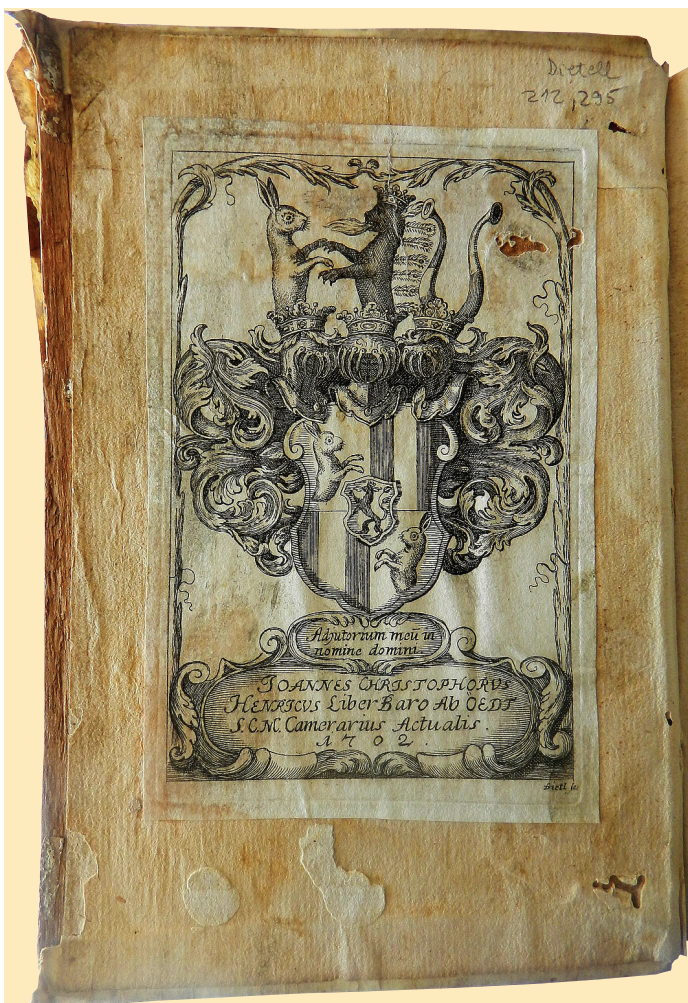 Dietell
212,295
Adjutorium meũ in
nomine domini.
IOANNES CHRISTOPHORVS
HENRICVS Liber Baro Ab OEDT
S.C.M. Camerarius Actualis.
1702.
Dietl sc